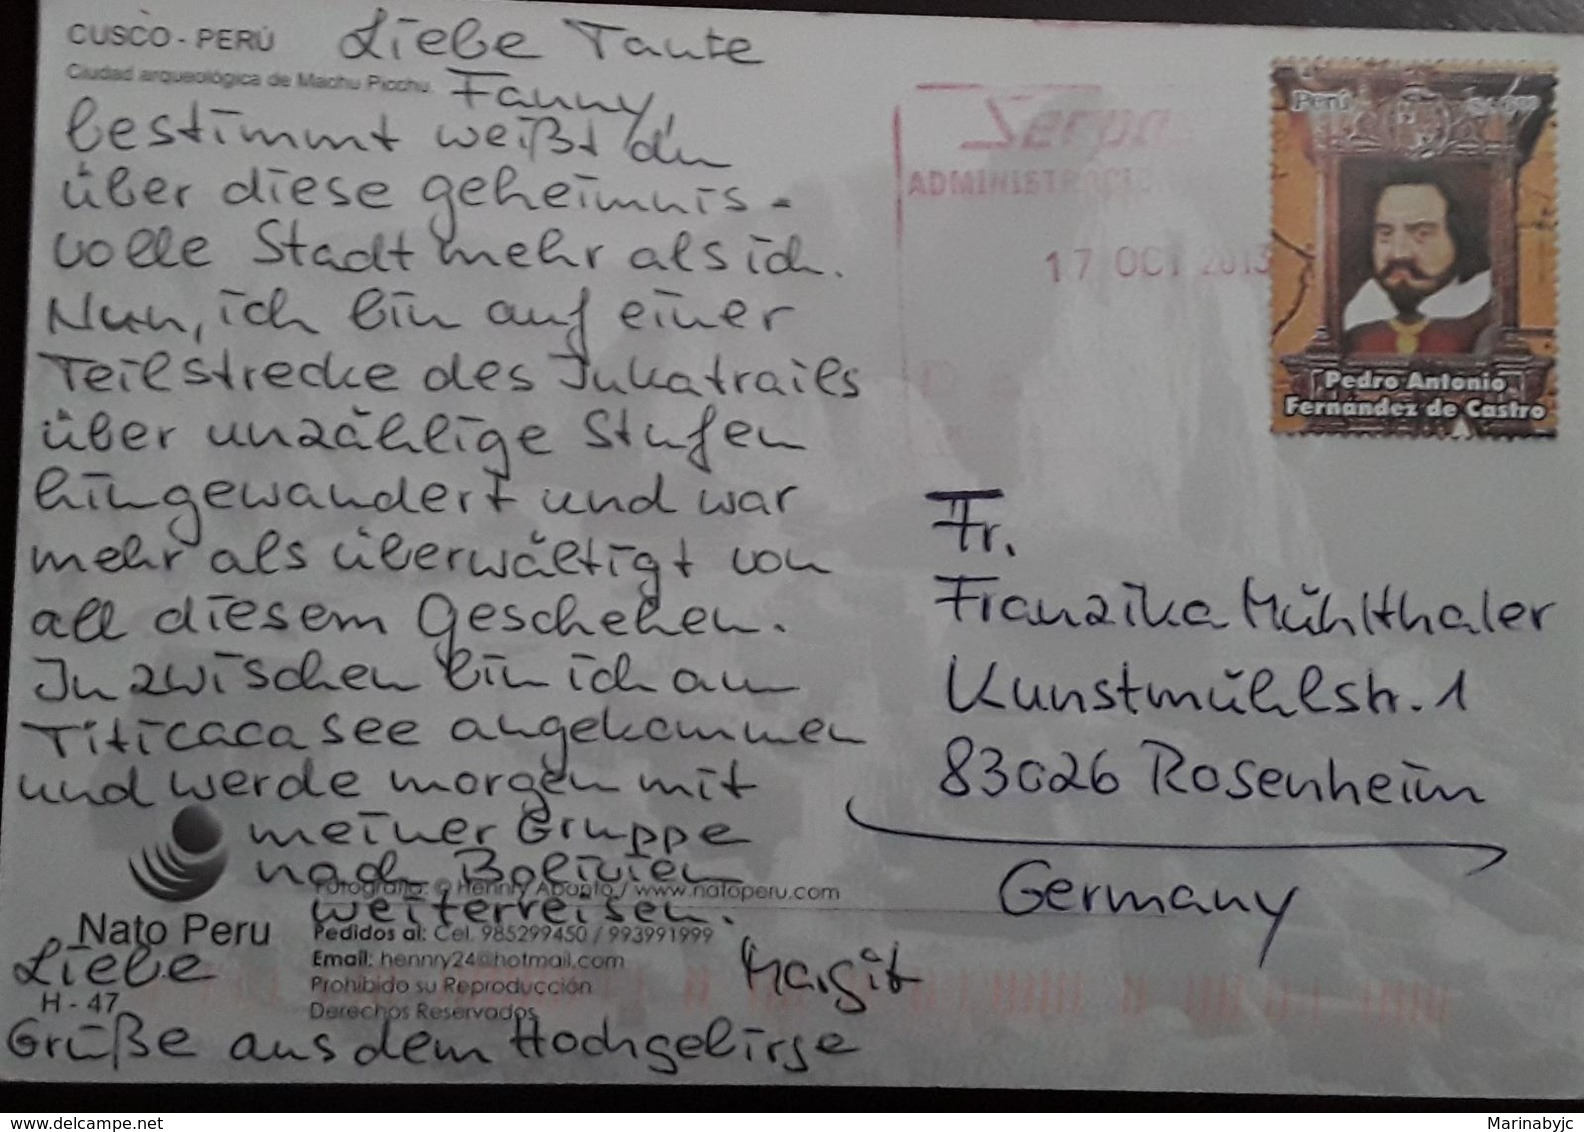 CUSCO - PERÚ
Ciudad arqueológica de Machu Picchu.
Liebe Tante
Fanny,
bestimmt weißt du
über diese geheimnis-
volle Stadt mehr als ich.
Nun, ich bin auf einer
Teilstrecke des Inkatrails
über unzählige Stufen
hingewandert und war
mehr als überwältigt von
all diesem Geschehen.
Inzwischen bin ich am
Titicacasee angekommen
und werde morgen mit
meiner Gruppe
nach Bolivien
weiterreisen.
Liebe
Grüße aus dem Hochgebirge
Margit
Fotografía: © Hennry Aponto / www.natoperu.com
Nato Peru
Pedidos al: Cel. 985299450 / 993991999
Email: hennry24@hotmail.com
Prohibido su Reproducción
Derechos Reservados
H - 47
Serpo
ADMINISTRACIO
17 OCT 2013
Perú
Pedro Antonio
Fernández de Castro
Fr.
Franzika Mühlthaler
Kunstmühlstr. 1
83026 Rosenheim
Germany
www.delcampe.net
Marinabyjc